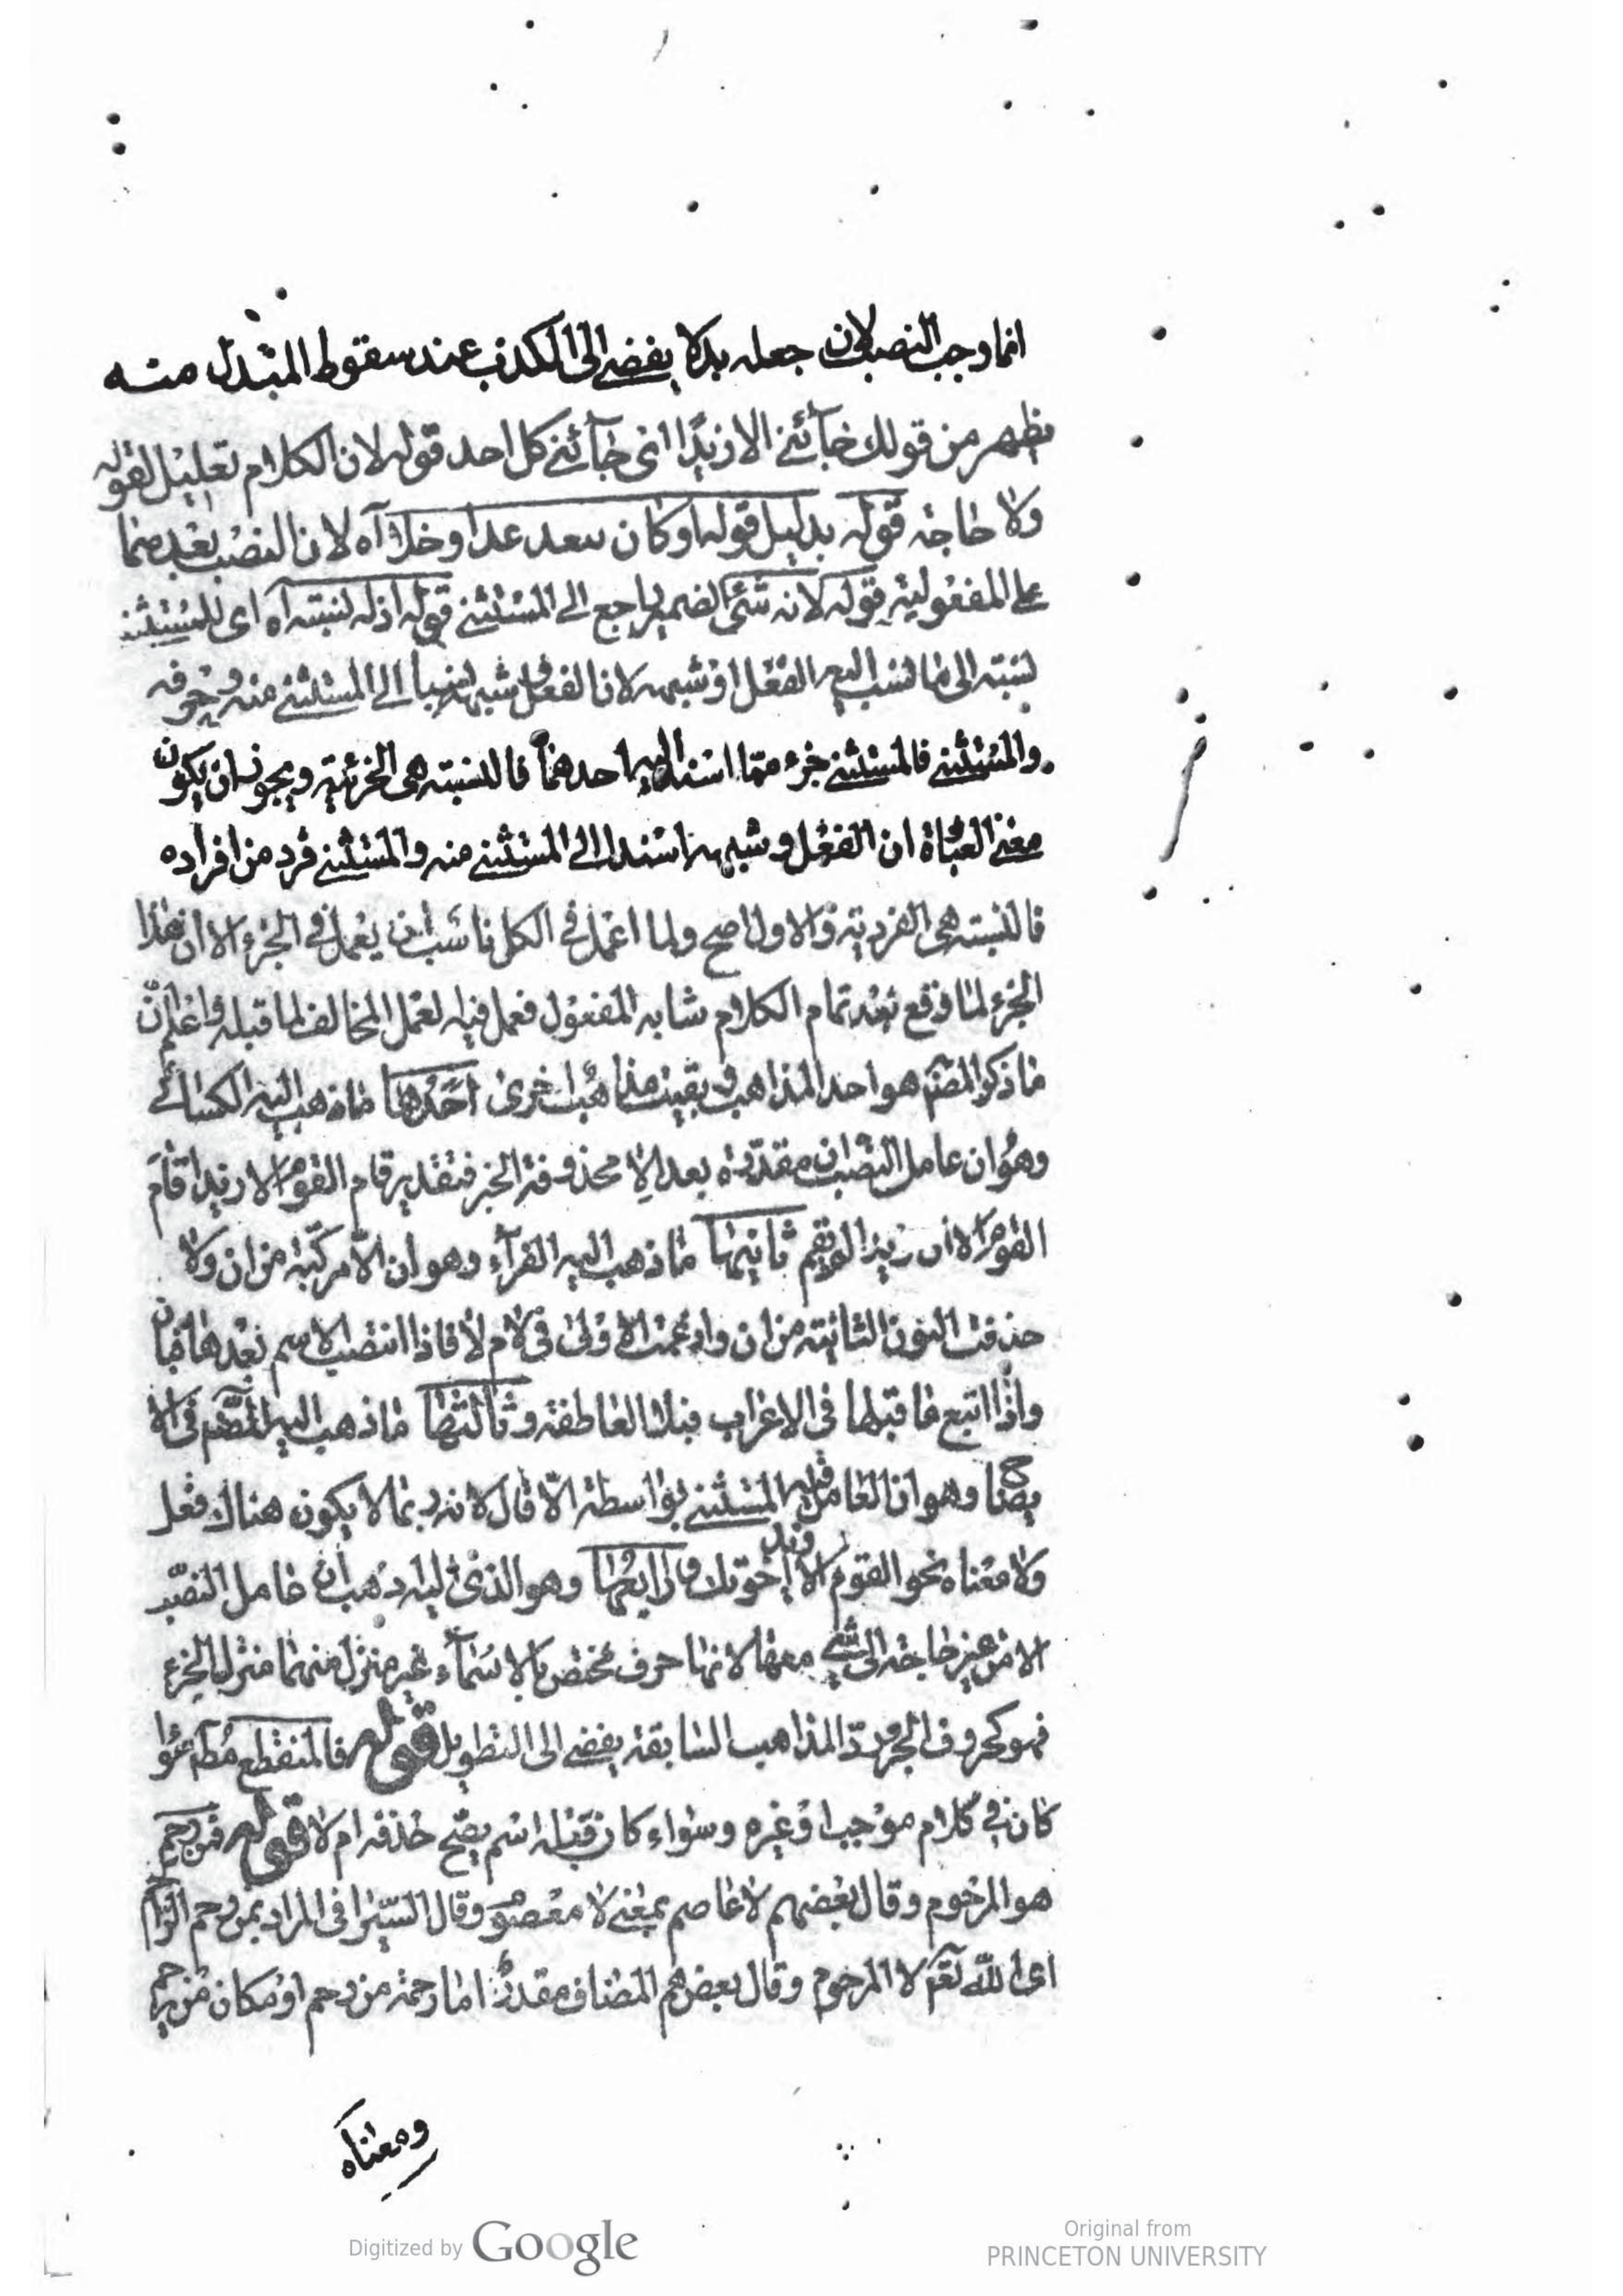 انما وجب النصب لان جعله بدلا يفضى الى الكذب عند سقوط المبدل منه
يظهر من قولك جآئنى الا زيدًا انى جآئنى كل احد قوله لان الكلام تعليل لقوله
ولا حاجة قوله بدليل قولها وكان بعد عدا وخلا آه لان النصب بعدهما
على المفعولية قوله لانه شئ الضمير راجع الى المستثنى قوله اذ له نسبته آه اى للمستثنى
نسبته الى ما نسب اليه الفعل او شبهه لان الفعل وشبهه الى المستثنى منه
والمستثنى فالمستثنى جزء مما اسند اليه احدهما فالنسبته هى الجزئية ويجوز ان يكون
معنى العباة ان الفعل وشبهه اسندا الى المستثنى منه والمستثنى فرد من افراده
فالنسبته هى الفردية والاول اصح ولما اعمل فى الكل ناسب ان يعمل فى الجزء الا ان هذا
الجزء لما وقع بعد تمام الكلام شابه المفعول فعمل فيه لعمل المخالف لما قبله واعلم انّ
ما ذكر المصنّ هو احد المذاهب وبقيت مذاهب اخرى احدها ما ذهب اليه الكسائى
وهو ان عامل النصب ان مقدرة بعد الا محذوفة الخبر فتقدير قام القوم الا زيدا قام
القوم الا ان زيدا لم يقم ثانيها ما ذهب اليه الفرآء وهو ان الّا مركبة من ان ولا
حذفت النون الثانية من ان وادغمت الاولى فى لام لا فاذا انتصب الاسم بعدها فبان
واذا اتبع ما قبلها فى الاعراب فبلا العاطفة وثالثها ما ذهب اليه المصّ فى الا
يضاح وهو ان العامل فيه المستثنى بواسطة الّا قال لانه ربما لا يكون هناك فعل
ولا معناه نحو القوم الا زيد اخوتك ورابعها وهو الذى اليه ذهب ان عامل النصب
الا من غير حاجة الى شئ معها لانها حرف مختص بالاسمآء غير منزل منهما منزلة الجزء
فهو كحروف الجر وردّ المذاهب السابقة يفضى الى التطويل قوله فالمنقطع مطلقا سوا
كان فى كلام موجب او غيره وسواء كان قبله اسم يصح حذفه ام لا قوله فمن رحم
هو المرحوم وقال بعضهم لا عاصم بمعنى لا معصوم وقال السيرافى المراد بمن رحم الراحم
اى الله تعم لا المرحوم وقال بعضهم المضاف مقدر اما رحمة من رحم او مكان من رحم
ومعناه
Digitized by Google
Original from
PRINCETON UNIVERSITY